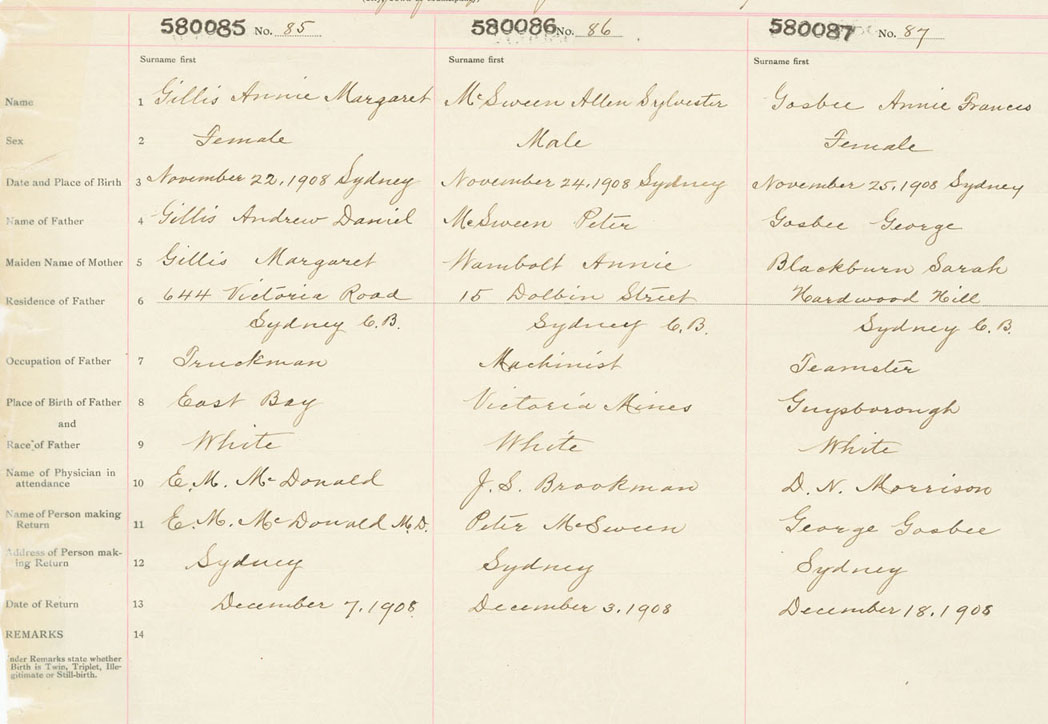 580085 No. 85 580086 No. 86 580087 No. 87
Surname first Surname first Surname first
Name 1 Gillis Annie Margaret McSween Allen Sylvester Gosbee Annie Frances
Sex 2 Female Male Female
Date and Place of Birth 3 November 22, 1908 Sydney November 24, 1908 Sydney November 25, 1908 Sydney
Name of Father 4 Gillis Andrew Daniel McSween Peter Gosbee George
Maiden Name of Mother 5 Gillis Margaret Wambolt Annie Blackburn Sarah
Residence of Father 6 644 Victoria Road 15 Dolbin Street Hardwood Hill
Sydney C.B. Sydney C.B. Sydney C.B.
Occupation of Father 7 Truckman Machinist Teamster
Place of Birth of Father 8 East Bay Victoria Mines Guysborough
and
Race of Father 9 White White White
Name of Physician in
attendance 10 E.M. McDonald J.S. Brookman D.N. Morrison
Name of Person making
Return 11 E.M. McDonald M.D. Peter McSween George Gosbee
Address of Person mak-
ing Return 12 Sydney Sydney Sydney
Date of Return 13 December 7, 1908 December 3, 1908 December 18, 1908
REMARKS 14
nder Remarks state whether
Birth is Twin, Triplet, Ille-
gitimate or Still-birth.